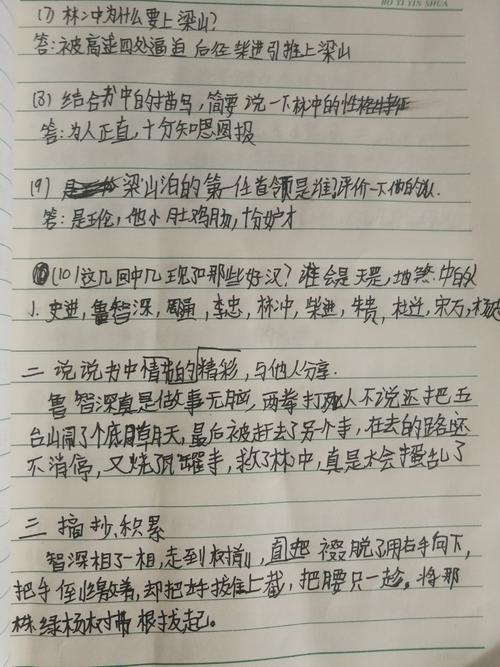 BO YI YIN SHUA
(7) 林冲为什么要上梁山?
答:被高逑四处逼迫 后经柴进引推上梁山
(8) 结合书中的描写,简要说一下林冲的性格特征
答:为人正直,十分知恩图报
(9) 梁山泊的第一任首领是谁?评价一下他的为人.
答:是王伦,他小肚鸡肠,十分妒才
(10)这几回中几现了那些好汉?谁会是天罡,地煞.中的人
1. 史进,鲁智深,周通,李忠,林冲,柴进,朱贵,杜迁,宋万,杨志
二 说说书中情节的精彩,与他人分享.
鲁智深真是做事无脑,两拳打死人不说还把五
台山闹了个底朝天,最后被赶去了另个寺,在去的路还
不消停,又烧了瓦罐寺,救了林冲,真是太会捣乱了
三 摘抄、积累
智深相了一相,走到树前,直把 脱了用右手向下,
把手倒缴着,却把左手拔住上截,把腰只一趁。将那
株绿杨树带根拔起。